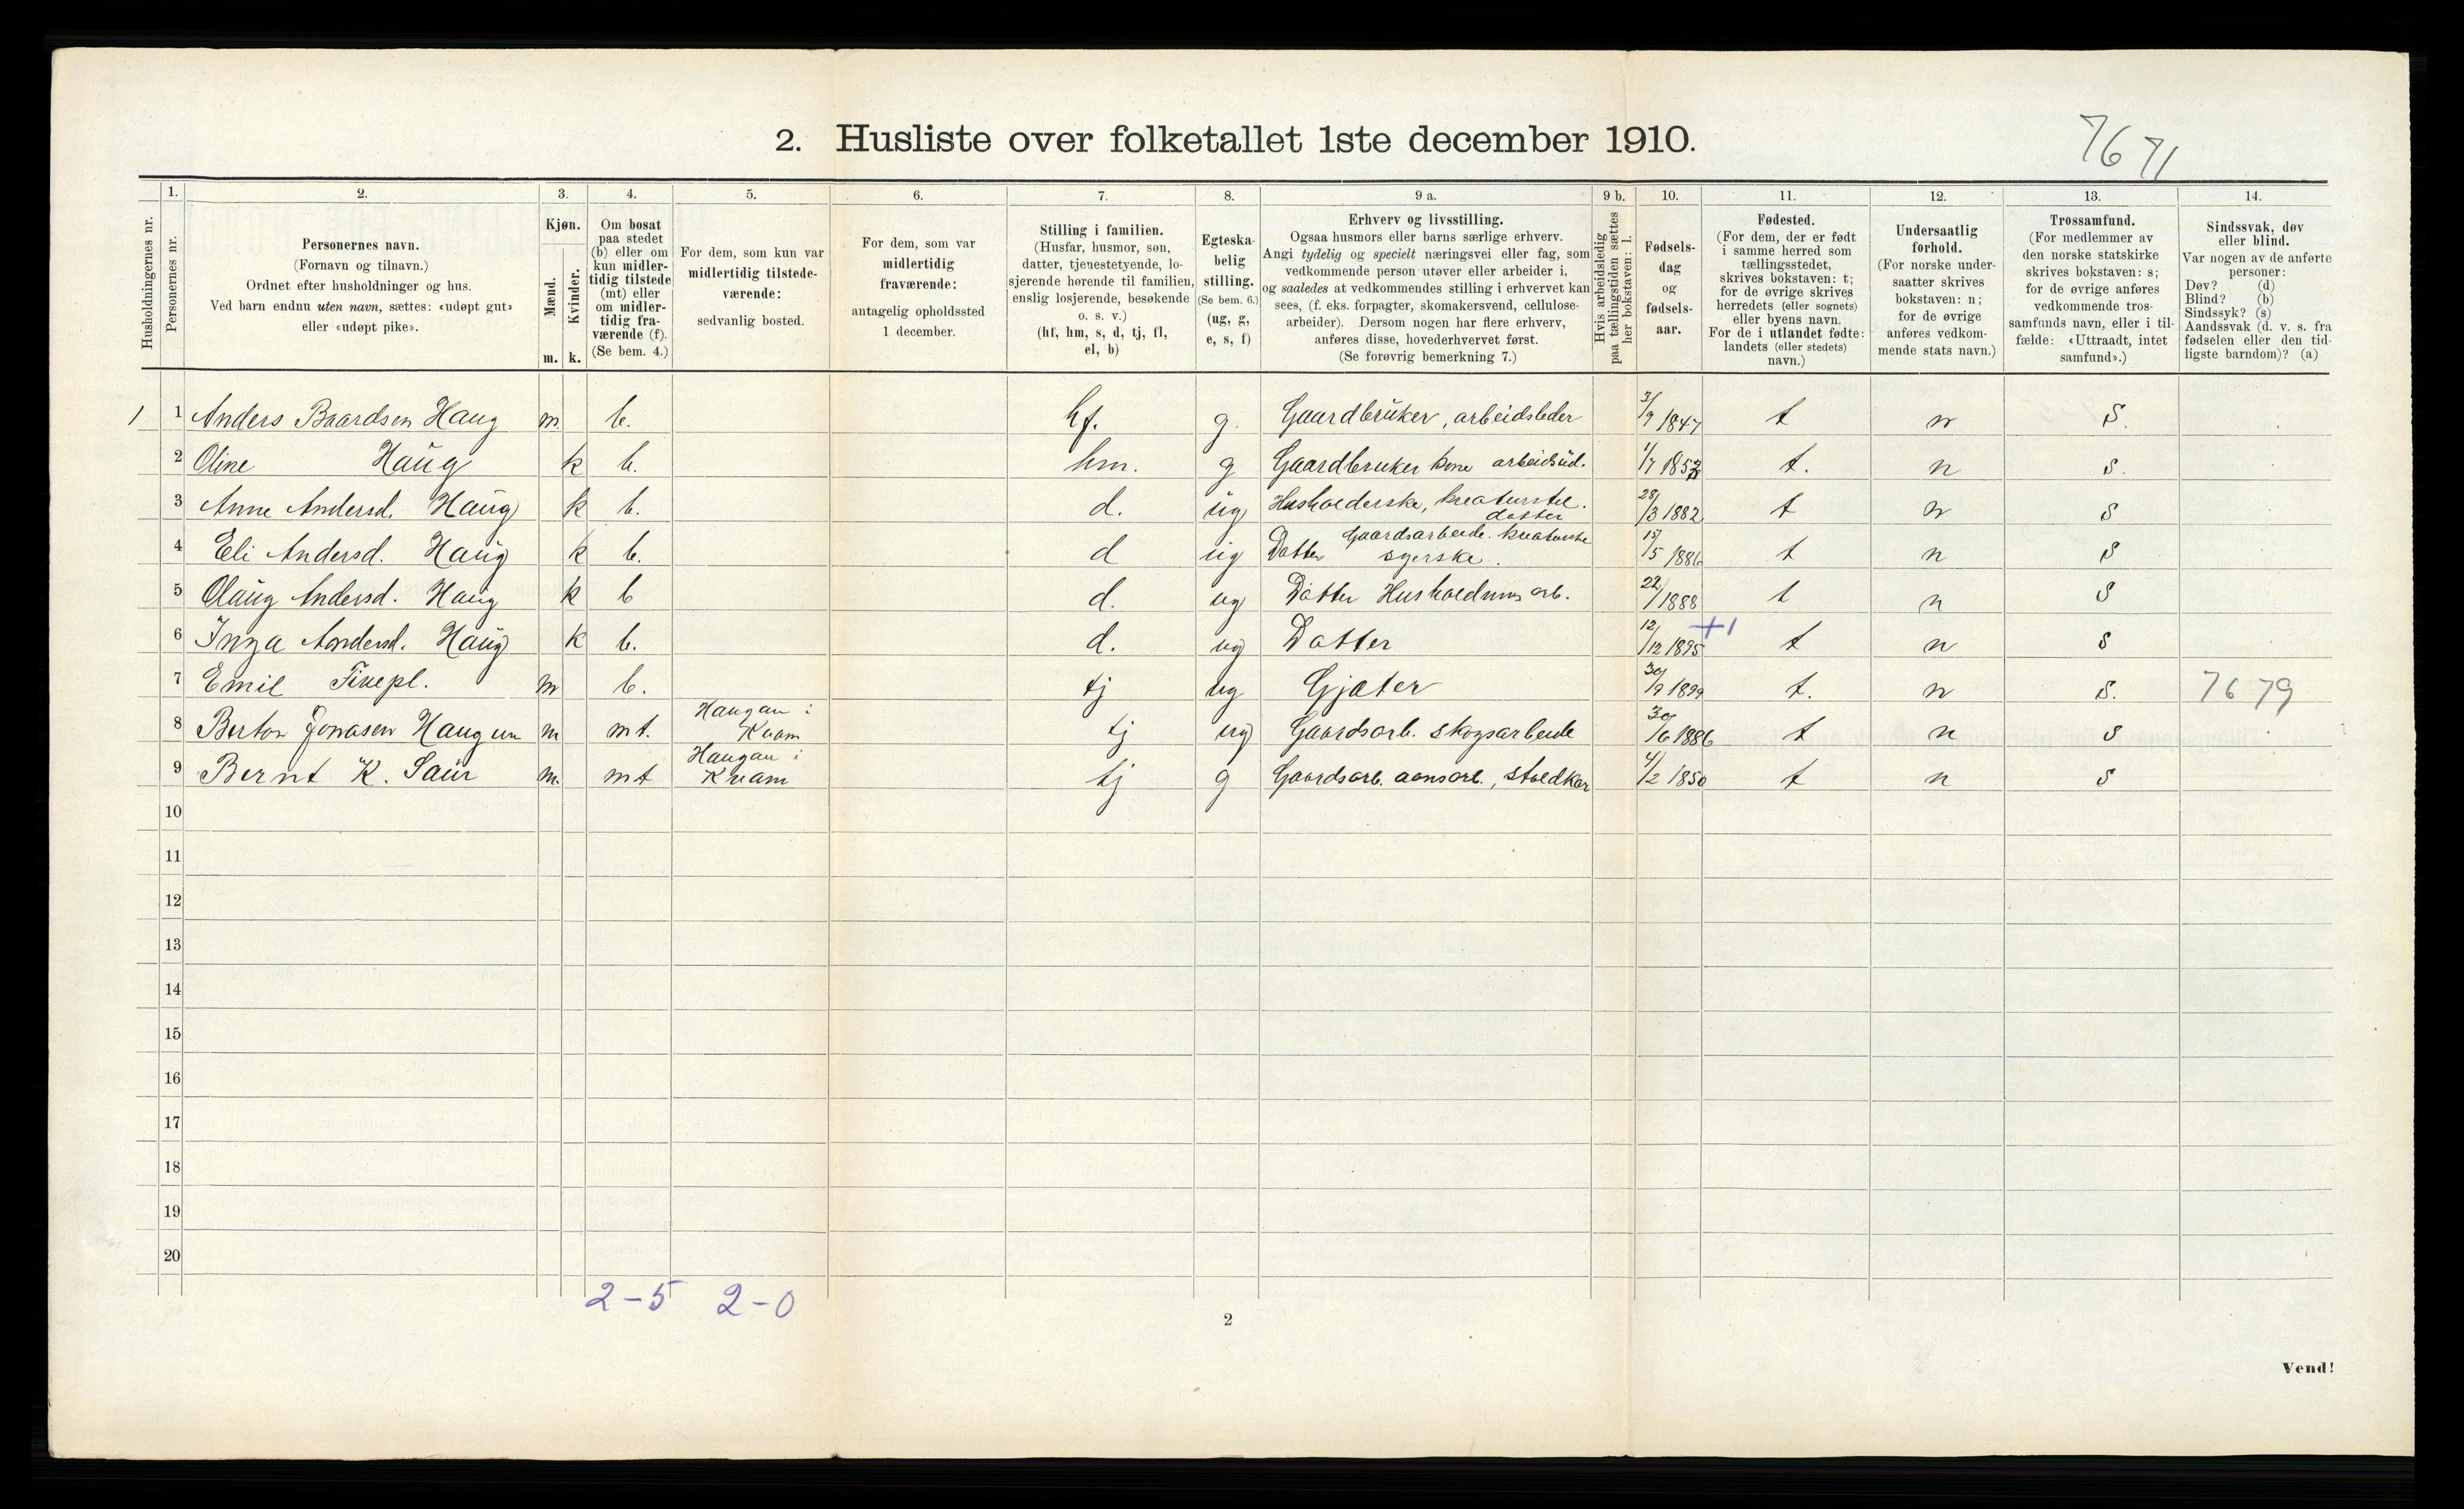 2. Husliste over folketallet 1ste december 1910.
7671
Husholdningernes nr.
1.
Personernes nr.
2.
Personernes navn.
(Fornavn og tilnavn.)
Ordnet efter husholdninger og hus.
Ved barn endnu uten navn, sættes: «udøpt gut»
eller «udøpt pike».
3.
Kjøn.
Mænd.
Kvinder.
m. k.
4.
Om bosat
paa stedet
(b) eller om
kun midler-
tidig tilstede
(mt) eller
om midler-
tidig fra-
værende (f).
(Se bem. 4.)
5.
For dem, som kun var
midlertidig tilstede-
værende:
sedvanlig bosted.
6.
For dem, som var
midlertidig
fraværende:
antagelig opholdssted
1 december.
7.
Stilling i familien.
(Husfar, husmor, søn,
datter, tjenestetyende, lo-
sjerende hørende til familien,
enslig losjerende, besøkende
o. s. v.)
(hf, hm, s, d, tj, fl,
el, b)
8.
Egteska-
belig
stilling.
(Se bem. 6.)
(ug, g,
e, s, f)
9 a.
Erhverv og livsstilling.
Ogsaa husmors eller barns særlige erhverv.
Angi tydelig og specielt næringsvei eller fag, som
vedkommende person utøver eller arbeider i,
og saaledes at vedkommendes stilling i erhvervet kan
sees, (f. eks. forpagter, skomakersvend, cellulose-
arbeider). Dersom nogen har flere erhverv,
anføres disse, hovederhvervet først.
(Se forøvrig bemerkning 7.)
9 b.
Hvis arbeidsledig
paa tællingstiden sættes
her bokstaven: l.
10.
Fødsels-
dag
og
fødsels-
aar.
11.
Fødested.
(For dem, der er født
i samme herred som
tællingsstedet,
skrives bokstaven: t;
for de øvrige skrives
herredets (eller sognets)
eller byens navn.
For de i utlandet fødte:
landets (eller stedets)
navn.)
12.
Undersaatlig
forhold.
(For norske under-
saatter skrives
bokstaven: n;
for de øvrige
anføres vedkom-
mende stats navn.)
13.
Trossamfund.
(For medlemmer av
den norske statskirke
skrives bokstaven: s;
for de øvrige anføres
vedkommende tros-
samfunds navn, eller i til-
fælde: «Uttraadt, intet
samfund».)
14.
Sindssvak, døv
eller blind.
Var nogen av de anførte
personer:
Døv? (d)
Blind? (b)
Sindssyk? (s)
Aandssvak (d. v. s. fra
fødselen eller den tid-
ligste barndom)? (a)
1 1 Anders Baardsen Haug m b. hf. g. Gaardbruker, arbeidsleder 3/9 1847 t n S.
2 Oline Haug k b. hm. g Gaardbruker kone arbeidsud. 1/7 t. n s.
3 Anne Andersd. Haug k b. d. ug Husholderske, kreaturstel. datter 28/3 1882 t n S
4 Eli Andersd. Haug k b. d ug Datter Gaardsarbeide. syerske. 15/5 1886 t n S
5 Olaug Andersd. Haug k b d. ug Datter arb. 22/ 1888 t n S
6 Inga Andersd. Haug k b. d. ug Datter 12/12 1895 +1 t n S
7 Emil Finepl. m b. tj ug Gjæter 30/9 1899 t. n S. 7679
8 Jonasen Haugum m mt. Haugan i Kvam tj ug Gaardsarb. skogsarbeide 30/6 1886 t n S
9 Bernt K. Saur m. mt Haugan i Kvam tj g Gaardsarb. 4/2 1850 t n S
10
11
12
13
14
15
16
17
18
19
20
2-5 2-0
2
Vend!